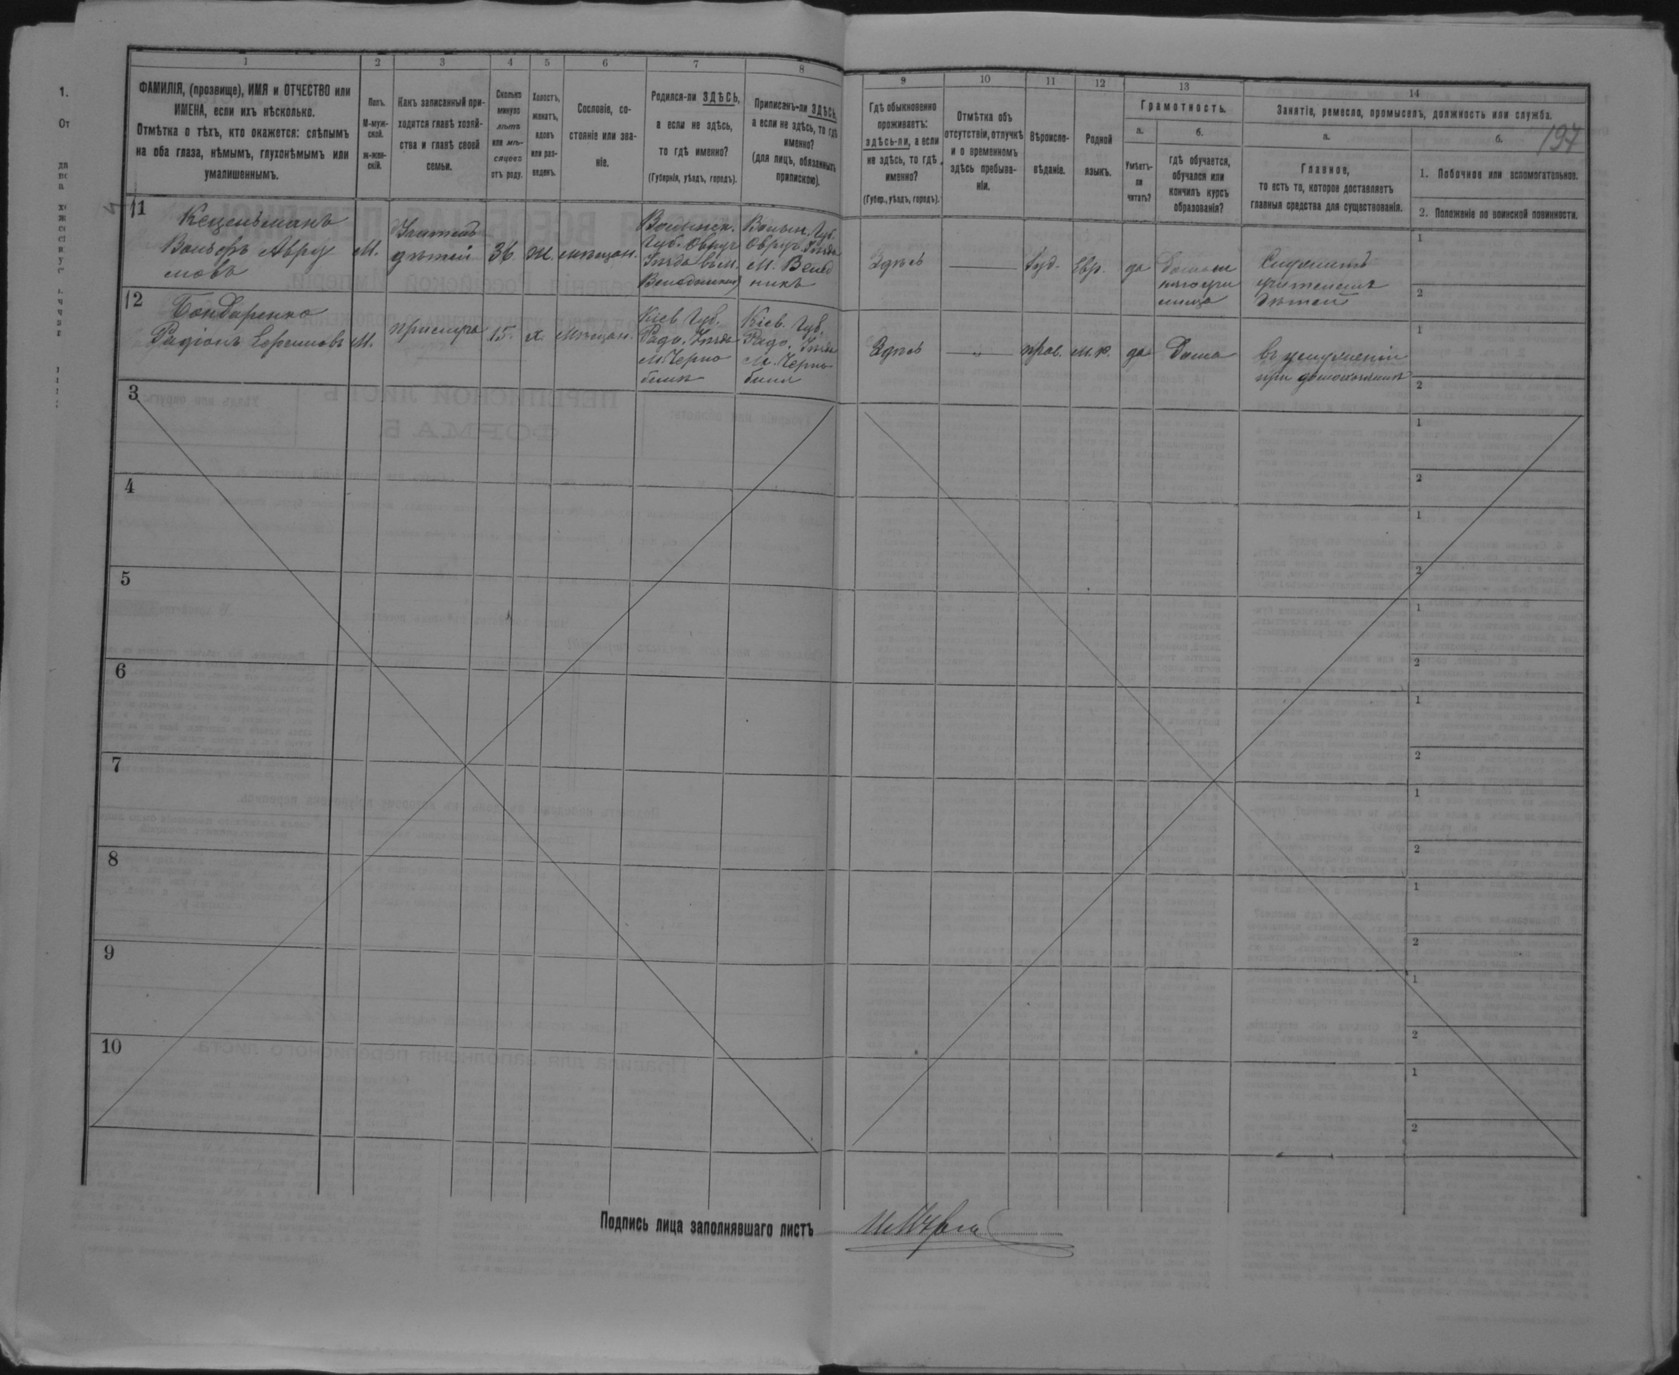 1.
От
197
1
2
3
4
5
6
7
8
9
10
11
12
13
14
ФАМИЛІЯ, (прозвище), ИМЯ и ОТЧЕСТВО или
ИМЕНА, если ихъ нѣсколько.
Отмѣтка о тѣхъ, кто окажется: слѣпымъ
на оба глаза, нѣмымъ, глухонѣмымъ или
умалишеннымъ.
Полъ.
М-муж-
ской.
Ж-жен-
скій.
Какъ записанный при-
ходится главѣ хозяй-
ства и главѣ своей
семьи.
Сколько
минуло
лѣтъ
или мѣ-
сяцевъ
отъ роду.
Холостъ,
женатъ,
вдовъ
или раз-
веденъ.
Сословіе, со-
стояніе или зва-
ніе.
Родился-ли ЗДѢСЬ,
а если не здѣсь,
то гдѣ именно?
(Губернія, уѣздъ, городъ).
Приписанъ-ли ЗДѢСЬ,
а если не здѣсь, то гдѣ
именно?
(для лицъ, обязанныхъ
припискою).
Гдѣ обыкновенно
проживаетъ:
здѣсь-ли, а если
не здѣсь, то гдѣ
именно?
(Губер., уѣздъ, городъ).
Отмѣтка объ
отсутствіи, отлучкѣ
и о временномъ
здѣсь пребыва-
ніи.
Вѣроиспо-
вѣданіе.
Родной
языкъ.
Грамотность.
а.
Умѣетъ-
ли
читать?
б.
гдѣ обучается,
обучался или
кончилъ курсъ
образованія?
Занятіе, ремесло, промыселъ, должность или служба.
а.
Главное,
то есть то, которое доставляетъ
главныя средства для существованія.
б.
1. Побочное или вспомогательное.
2. Положеніе по воинской повинности.
1
Кецельманъ
Вольфъ Авру
мовъ
М.
Учитель
дѣтей
36
ж.
мѣщан.
Волынск.
Губ. Овруч
Уѣзда въ м.
Волын. Губ.
Овруч. Уѣзда
М. Велед
никъ
Здѣсь
Іуд.
Евр.
да
Служитъ
учителемъ
дѣтей
1
2
2
Бондаренко
Радіонъ
М.
прислуга
15.
х.
мѣщан.
Кіев. Губ.
Радо. Уѣзда
м. Черно
быль
Кіев. Губ.
Радо. Уѣзда
М. Черно
быль
Здѣсь
"
прав.
м.р.
да
Дома
въ услуженіи
при домохозяинѣ
1
2
3
1
2
4
1
2
5
1
2
6
1
2
7
1
2
8
1
2
9
1
2
10
1
2
Подпись лица заполнявшаго листъ